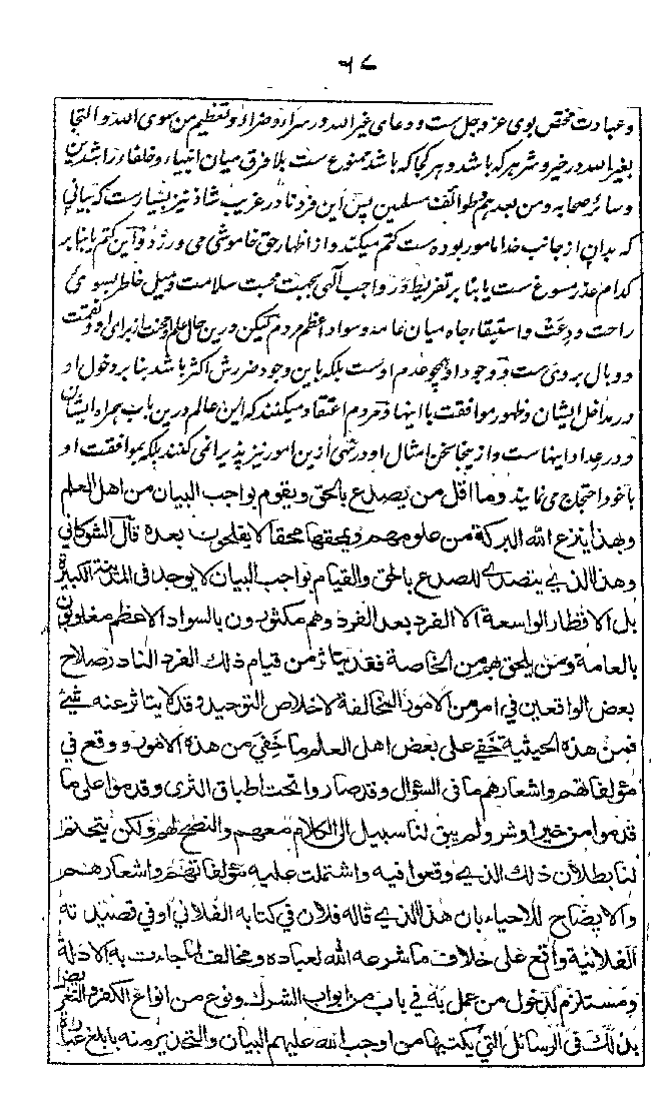 ٦٤
وعبادت مختص بوی عز وجل ست و دعای غیر الله در سراء و ضراء و تعظیم من سوی الله و التجا
بغیر الله در خیر و شر هر که باشد و هر کجا که باشد ممنوع ست بلا فرق میان انبیاء و خلفاء راشدین
و سائر صحابه و من بعدهم و طوائف مسلمین پس این فرد نادر عزیب شاذ نیز بسیارست که بیانی
که بدان از جانب خدا مامور بوده ست کتم میکند و از اظهار حق خاموشی می ورزد و این کتم یا بنا بر
کدام عذر مسوغ ست یا بنا بر تفریط در واجب الهی بجهت محبت سلامت و میل خاطر بسوئی
راحت و دعت و استبقاء جاه میان عامه و سواد اعظم مردم لیکن درین حال علم او حجت از برای او و نقمت
و وبال بر وی ست و وجود او همچو عدم اوست بلکه باین وجود ضررش اکثر باشد بنا بر دخول او
در مداخل ایشان و ظهور موافقت با اینها و مردم اعتقاد میکنند که این عالم درین باب همراه ایشان
و در عداد اینها ست و از ینجا سخن امثال او در شئی ازین امور نیز پذیرا نمی کنند بلکه بموافقت او
با خود احتجاج می نمایند وما اقل من يصدع بالحق ويقوم بواجب البيان من اهل العلم
وبهذا ينزع الله البركة من علومهم ويمحقها محقا لا يفلحون بعده قال الشوكاني
وهذا الذي يتصدى للصدع بالحق والقيام بواجب البيان لا يوجد في المدينة الكبيرة
بل الاقطار الواسعة الا الفرد بعد الفرد وهم مكثورون بالسواد الاعظم مغلوبون
بالعامة ومن يلحق بهم من الخاصة فقد يتاثر من قيام ذلك الفرد النادر صلاح
بعض الواقعين في امر من الامور المخالفة لاخلاص التوحيد وقد لا يتاثر عنه شيء
فمن هذه الحيثية خفي على بعض اهل العلم ما خفي من هذه الامور ووقع في
مؤلفاتهم واشعارهم ما في السؤال وقد صاروا تحت اطباق الثرى وقدموا على ما
قدموا من خير او شر ولم يبق لنا سبيل الى الكلام معهم والنصح لهم ولكن يتحتم
لنا بطلان ذلك الذي وقعوا فيه واشتملت عليه مؤلفاتهم واشعارهم
والايضاح للاحياء بان هذا الذي قاله فلان في كتابه الفلاني او في قصيدته
الفلانية واقع على خلاف ما شرعه الله لعباده ومخالف لما جاءت به الادلة
ومستلزم لدخول من عمل به في باب من ابواب الشرك ونوع من انواع الكفر والتعرض
بذلك في الرسائل التي يكتبها من اوجب الله عليهم البيان والتحذير منه بابلغ عبارة